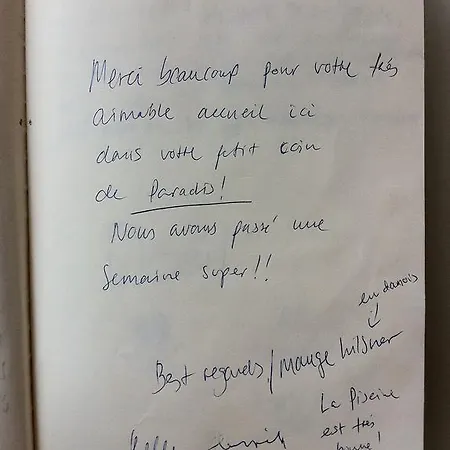 Merci beaucoup pour votre très
aimable accueil ici
dans votre petit coin
de Paradis!
Nous avons passé une
Semaine super!!
en danois
Best regards/Mange hilsner
La Piscine
est très
bonne!